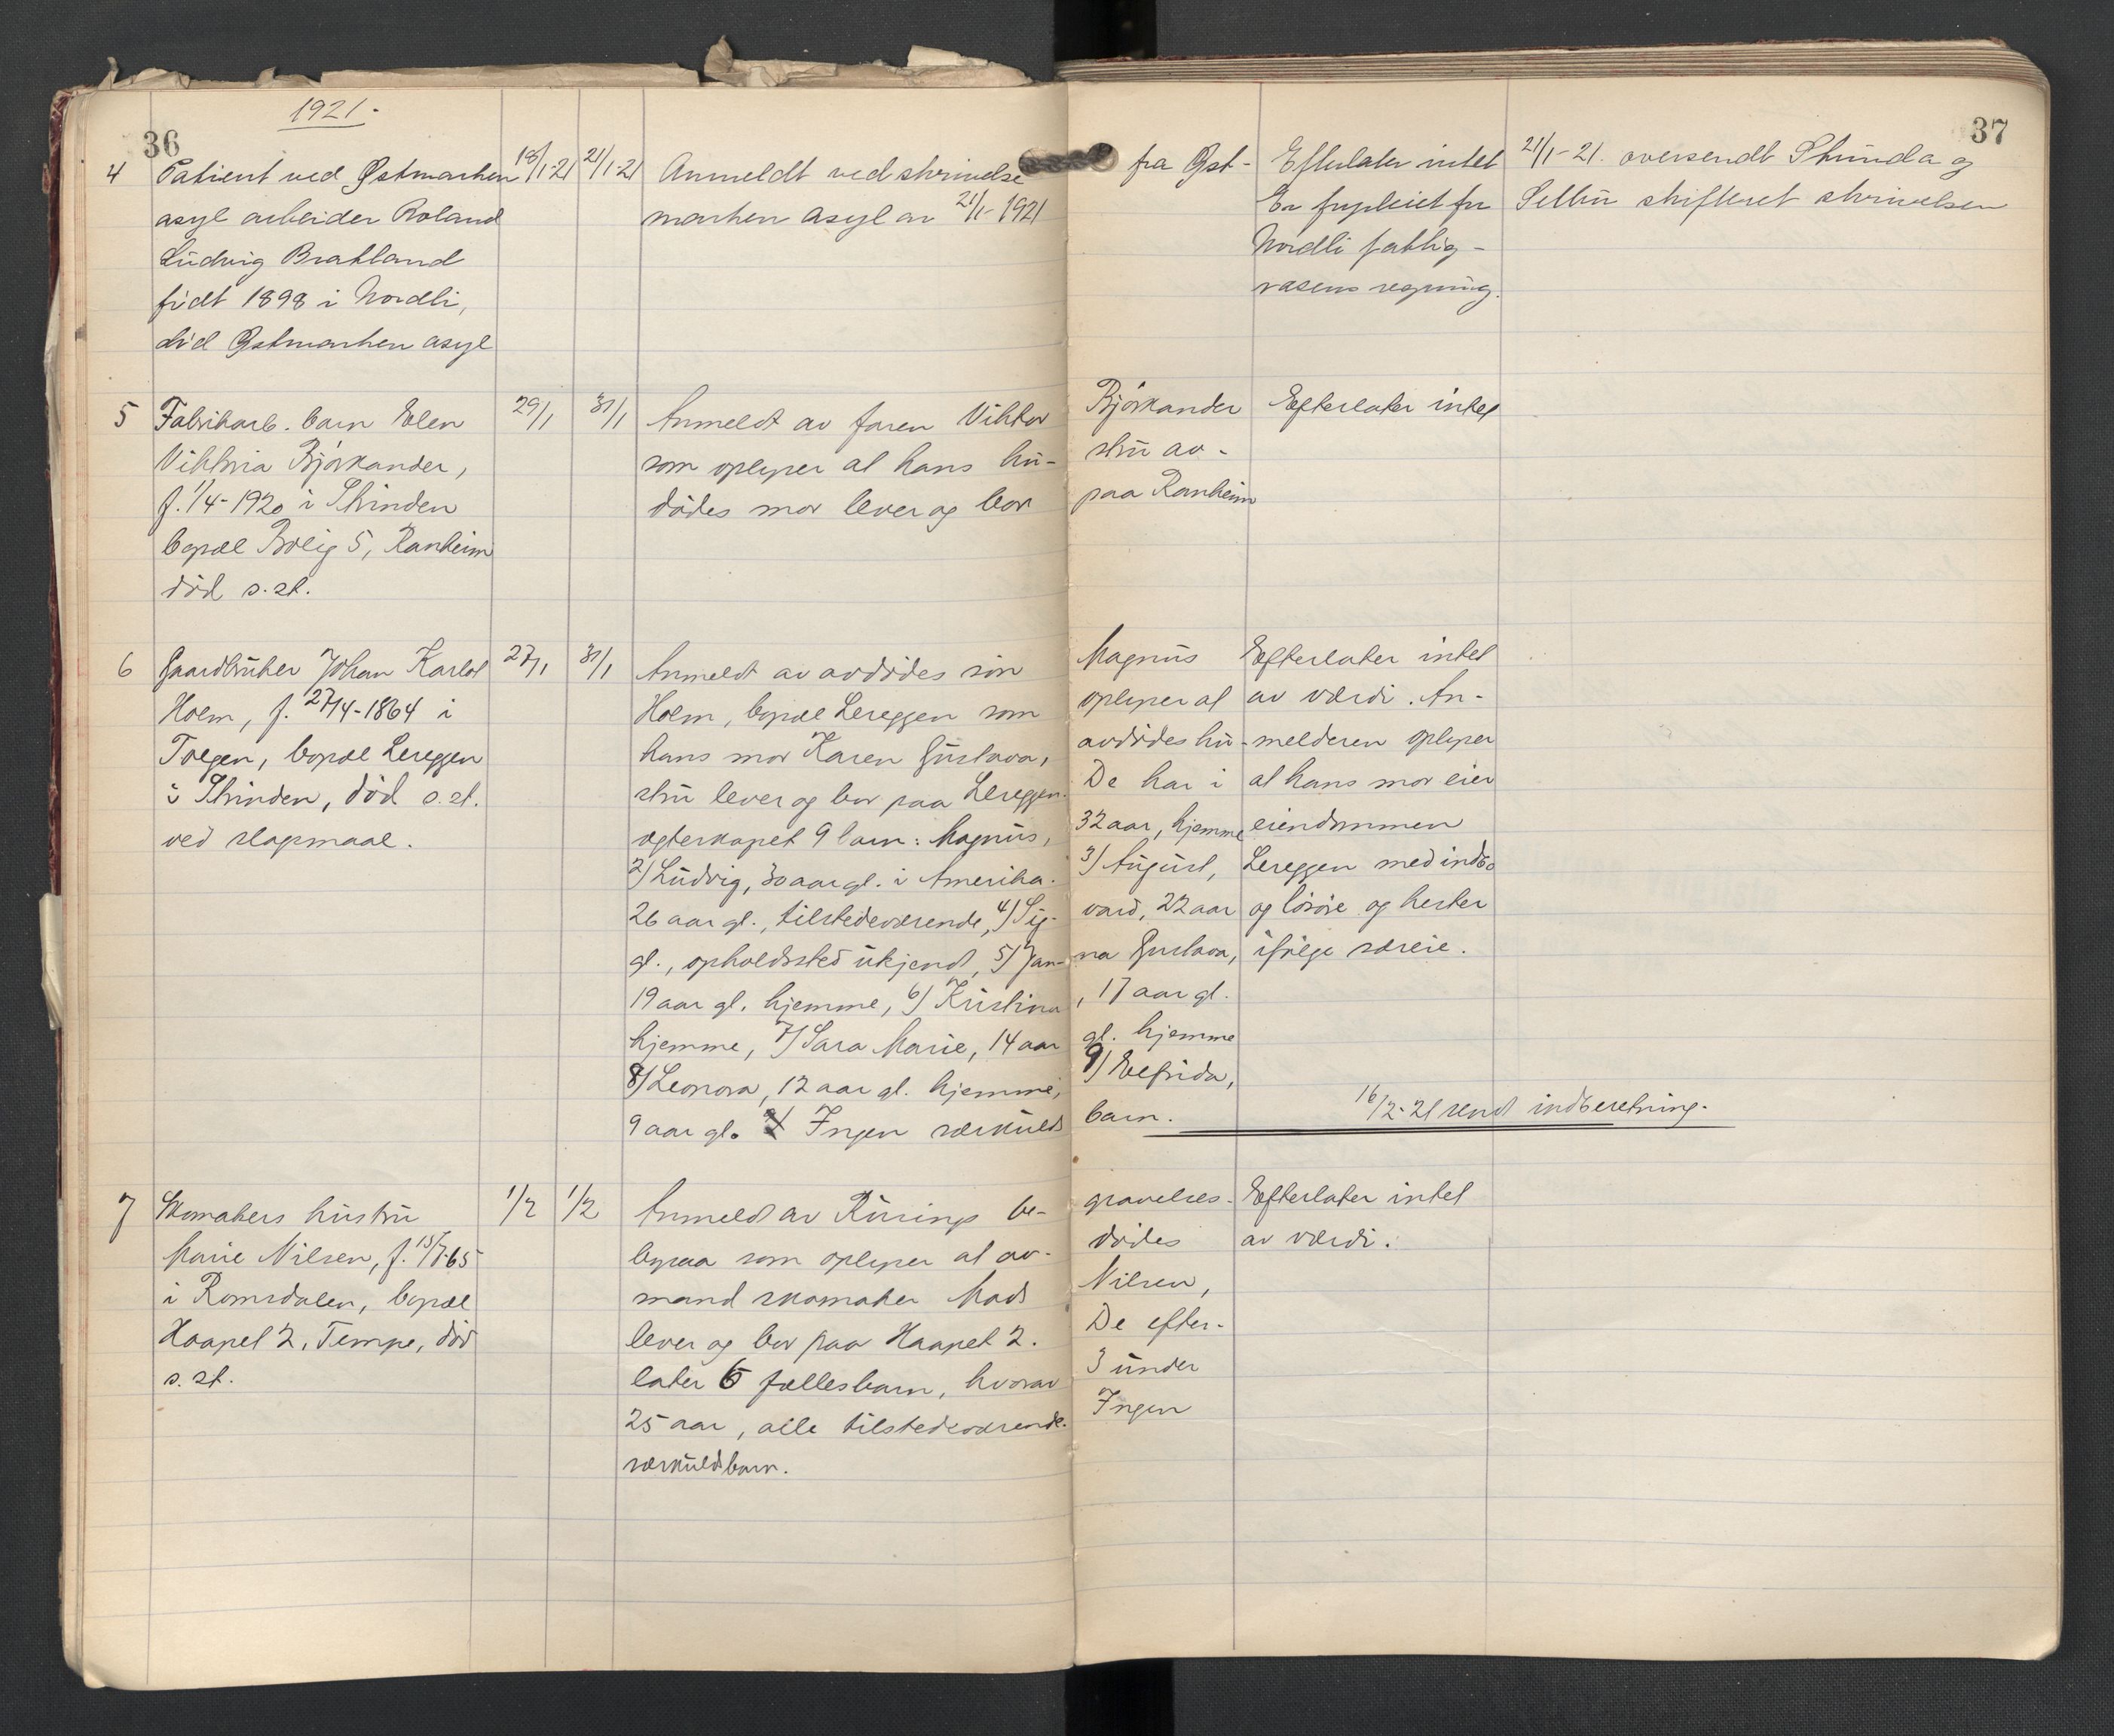 1921.
36
37
4 Patient ved Østmarken 18/1-21 21/1-21 Anmeldt ved skrivelse fra Øst- Efterlater intet 21/1-21. oversendt Strinda og
asyl arbeider Roland marken asyl av 21/1-1921 Er forpleiet for Selbu skifteret skrivelsen
Ludvig Bratland Nordli fattig-
födt 1898 i Nordli, væsens regning.
död Østmarken asyl
5 Fabrikarb. barn Elen 29/1 31/1 Anmeldt av faren Viktor Björkander Efterlater intet
Viktoria Björkander, som oplyser at hans hu- stru av-
f. 1/4-1920 i Strinden dödes mor lever og bor paa Ranheim
bopæl Bolig 5, Ranheim
död s. st.
6 Gaardbruker Johan Karlot 27/1 31/1 Anmeldt av avdödes sön Magnus Efterlater intet
Holm, f. 27/4-1864 i Holm, bopæl Lereggen som oplyser at av værdi. An-
Tolgen, bopæl Lereggen hans mor Karen Gustava, avdödes hu- melderen oplyser
i Strinden, död s. st. stru lever og bor paa Lereggen. De har i at hans mor eier
ved slagsmaal. egteskapet 9 barn: Magnus, 32 aar, hjemme eiendommen
2) Ludvig, 30 aar gl. i Amerika. 3) August, Lereggen med indbo
26 aar gl., tilstedeværende, 4) Sig- vard, 22 aar og lösöre og hester
gl., opholdssted ukjend, 5) Jan- na Gustava, ifölge særeie.
19 aar gl. hjemme, 6) Kristina, 17 aar gl.
hjemme, 7) Sara Marie, 14 aar gl. hjemme
8) Leonora, 12 aar gl. hjemme, 9) Elfrida,
9 aar gl. Ingen særkulds barn. 16/2-21 send indberetning.
7 Skomakers hustru 1/2 1/2 Anmeldt av Rusings be- gravelses- Efterlater intet
Marie Nilsen, f. 15/7-65 byraa som oplyser at av- dödes av værdi.
i Romsdalen, bopæl mand skomaker Mads Nilsen,
Haapet 2, Tempe, död lever og bor paa Haapet 2. De efter-
s. st. later 6 fællesbarn, hvorav 3 under
25 aar, alle tilstedeværende. Ingen
særkuldsbarn.